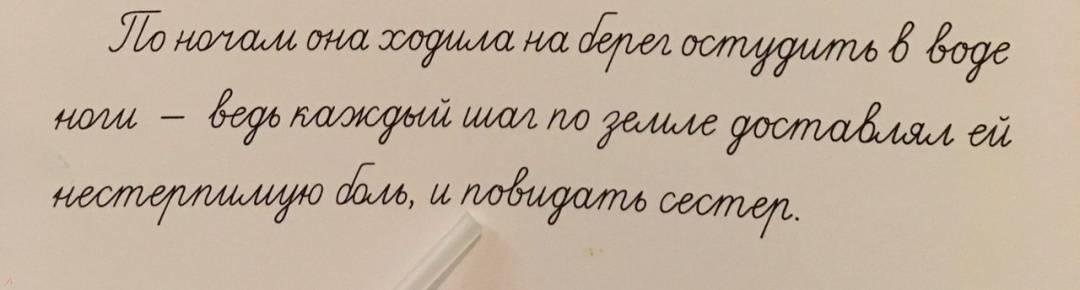 По ночам она ходила на берег остудить в воде
ноги – ведь каждый шаг по земле доставлял ей
нестерпимую боль, и повидать сестер.